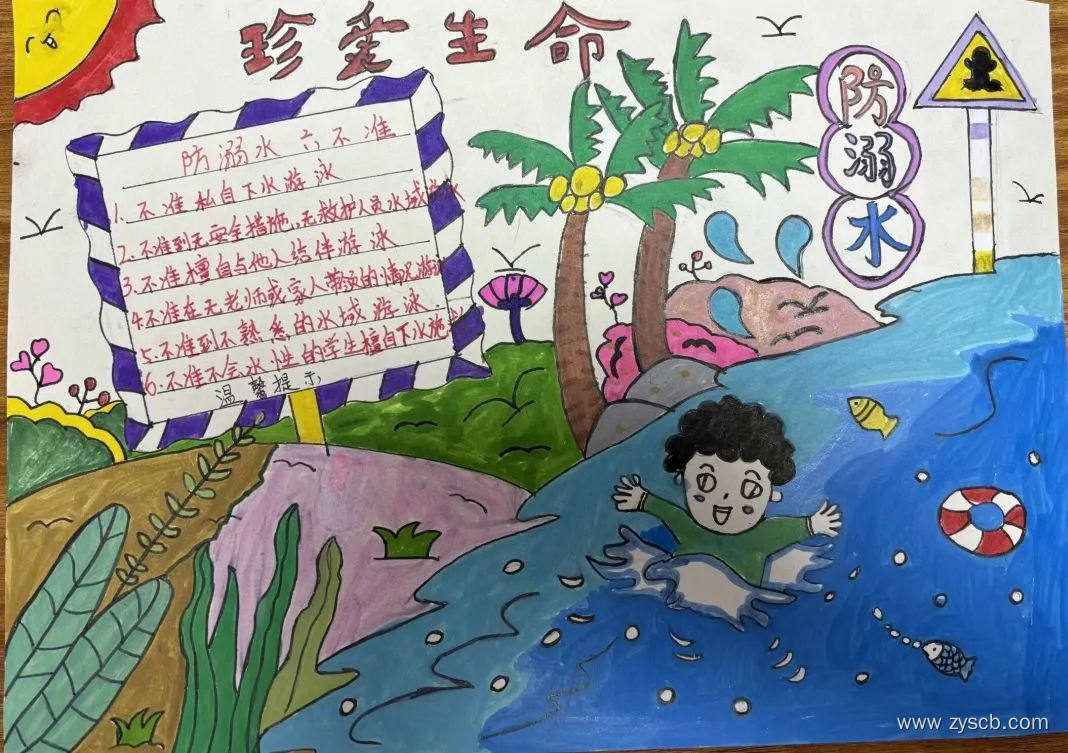 珍爱生命
防溺水
防溺水六不准
1.不准私自下水游泳
2.不准到无安全措施、无救护人员水域游水
3.不准擅自与他人结伴游泳
4.不准在无老师或家人带领的情况游泳
5.不准到不熟悉的水域游泳.
6.不准不会水性的学生擅自下水施救
温馨提示
www.zyscb.com